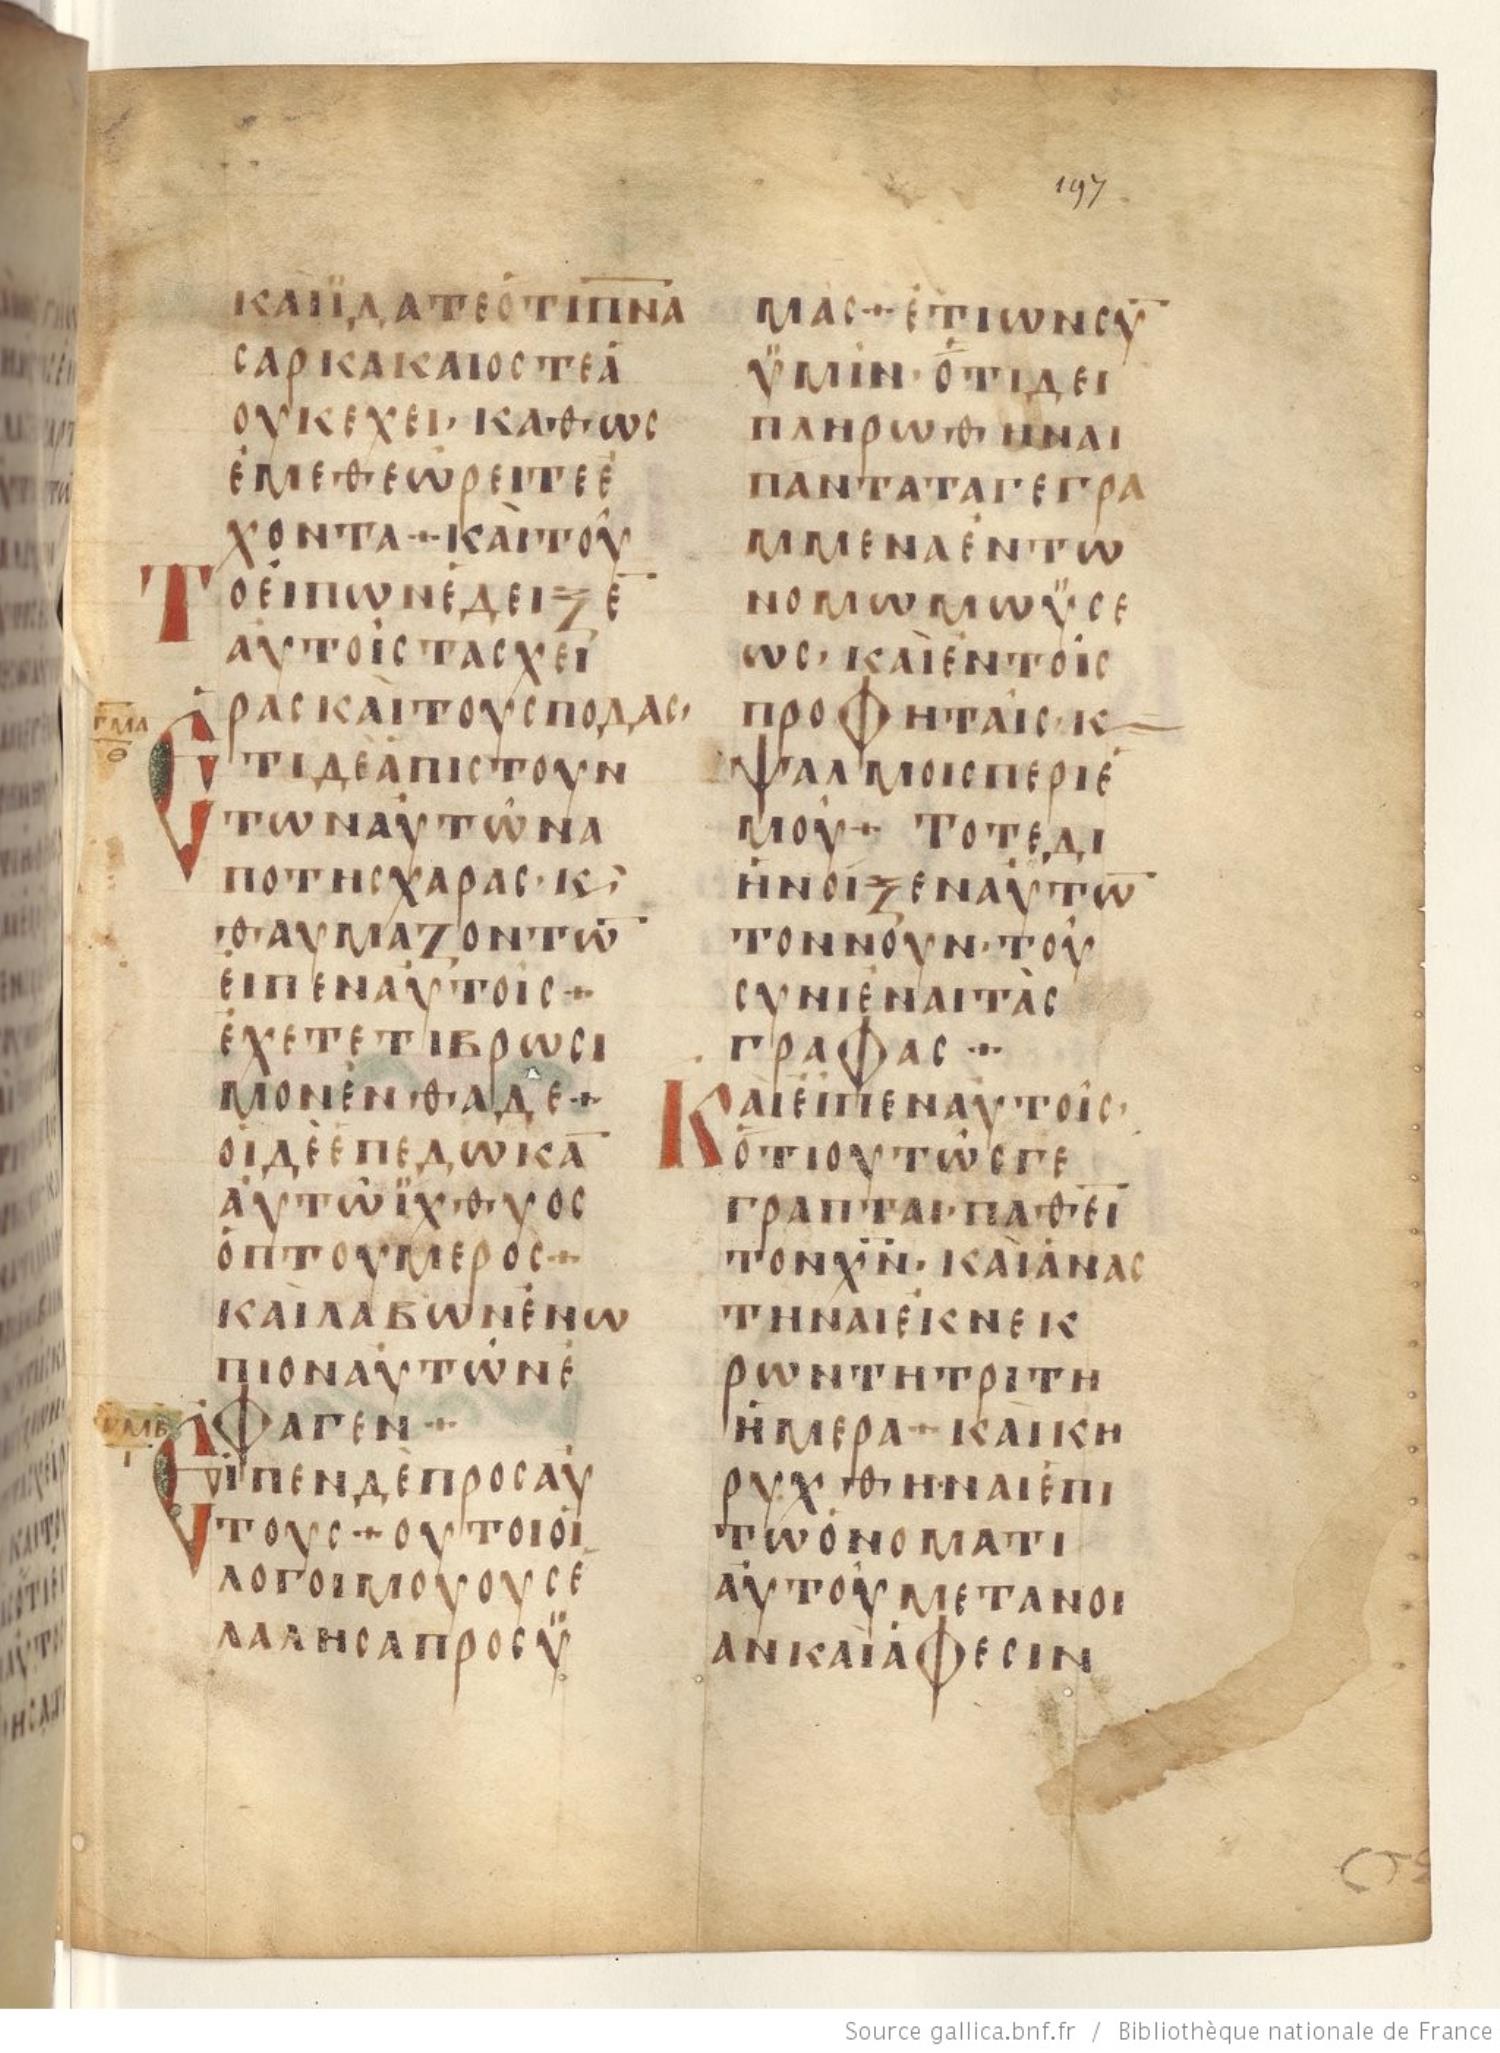 197
ΚΑΙΪΔΑΤΕΟΤΙΠ̅Ν̅Α
ΣΑΡΚΑΚΑΙΟΣΤΕΑ
ΟΥΚΕΧΕΙ· ΚΑΘΩΣ
ΕΜΕΘΕΩΡΕΙΤΕΕ
ΧΟΝΤΑ + ΚΑΙΤΟΥ
ΤΟΕΙΠΩΝΕΔΕΙΞΕ̅
ΑΥΤΟΙΣΤΑΣΧΕΙ
ΡΑΣΚΑΙΤΟΥΣΠΟΔΑΣ·
ΤΜΑ
Θ
ΕΤΙΔΕΑΠΙΣΤΟΥΝ
ΤΩΝΑΥΤΩΝΑ
ΠΟΤΗΣΧΑΡΑΣ· Κ
ΘΑΥΜΑΖΟΝΤΩ̅
ΕΙΠΕΝΑΥΤΟΙΣ +
ΕΧΕΤΕΤΙΒΡΩΣΙ
ΜΟΝΕΝΘΑΔΕ +
ΟΙΔΕΕΠΕΔΩΚΑ̅
ΑΥΤΩΪΧΘΥΟΣ
ΟΠΤΟΥΜΕΡΟΣ +
ΚΑΙΛΑΒΩΝΕΝΩ
ΠΙΟΝΑΥΤΩΝΕ
ΦΑΓΕΝ +
ΤΜΒ
Ι
ΕΙΠΕΝΔΕΠΡΟΣΑΥ
ΤΟΥΣ + ΟΥΤΟΙΟΙ
ΛΟΓΟΙΜΟΥΟΥΣΕ
ΛΑΛΗΣΑΠΡΟΣΫ
ΜΑΣ + ΕΤΙΩΝΣΥ̅
ΫΜΙΝ· ΟΤΙΔΕΙ
ΠΛΗΡΩΘΗΝΑΙ
ΠΑΝΤΑΤΑΓΕΓΡΑ
ΜΜΕΝΑΕΝΤΩ
ΝΟΜΩΜΩΫΣΕ
ΩΣ· ΚΑΙΕΝΤΟΙΣ
ΠΡΟΦΗΤΑΙΣ· Κ
ΨΑΛΜΟΙΣΠΕΡΙΕ
ΜΟΥ + ΤΟΤΕΔΙ
ΗΝΟΙΞΕΝΑΥΤΩ̅
ΤΟΝΝΟΥΝ· ΤΟΥ
ΣΥΝΙΕΝΑΙΤΑΣ
ΓΡΑΦΑΣ +
ΚΑΙΕΙΠΕΝΑΥΤΟΙΣ·
ΟΤΙΟΥΤΩΣΓΕ
ΓΡΑΠΤΑΙ· ΠΑΘΕΙ̅
ΤΟΝΧ̅Ν̅· ΚΑΙΑΝΑΣ
ΤΗΝΑΙΕΚΝΕΚ
ΡΩΝΤΗΤΡΙΤΗ
ΗΜΕΡΑ + ΚΑΙΚΗ
ΡΥΧΘΗΝΑΙΕΠΙ
ΤΩΟΝΟΜΑΤΙ
ΑΥΤΟΥΜΕΤΑΝΟΙ
ΑΝΚΑΙΑΦΕΣΙΝ
Source gallica.bnf.fr / Bibliothèque nationale de France